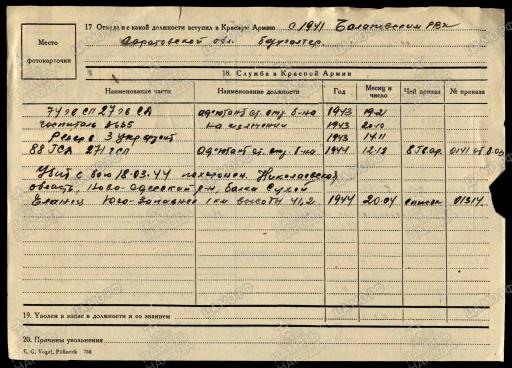 17 Откуда и с какой должности вступил в Красную Армию с 1941 Балашовским РВК
Саратовской обл. бухгалтер.
Место
фотокарточки
18. Служба в Красной Армии
Наименование части
Наименование должности
Год
Месяц и число
Чей приказ
№ приказа
адъютант ст. стр. б-на 1943
госпиталь на излечении 1943 20.10
Резерв 3 Укр фронт 1943 14.11
адъютант ст. стр. б-на 1944 12.12 8 Гв ар.
Убит в бою 18.03.44 похоронен. Николаевская
область, Ново-Одесский р-н, Балка Сухой
Еланец Юго-Западнее 1 км высоты 41,2 1944 20.04 список 01314
19. Уволен в запас в должности и со званием
20. Причины увольнения
C. G. Vogel, Pößneck 756